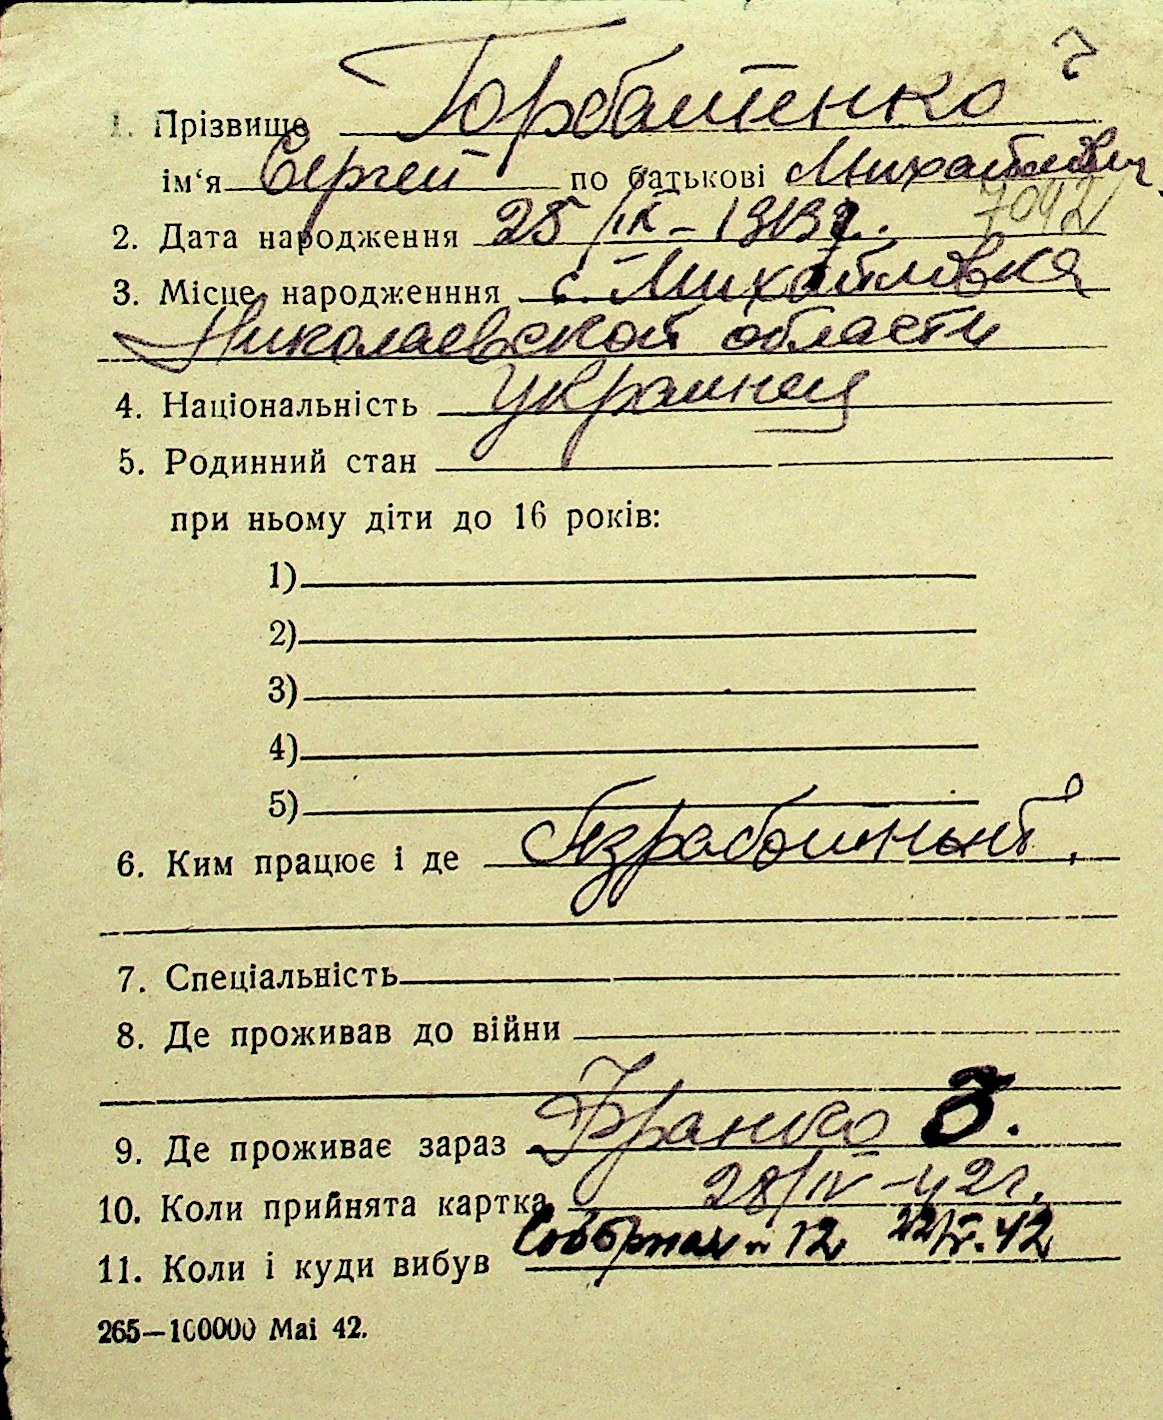 1. Прізвище Горбатенко
ім‘я Сергей по батькові Михайлович
7042
2. Дата народження 25/IX – 1919 г.
3. Місце народженння с. Михайловка
Николаевской области
4. Національність украинец
5. Родинний стан
при ньому діти до 16 років:
1)
2)
3)
4)
5)
6. Ким працює і де безработный.
7. Спеціальність
8. Де проживав до війни
9. Де проживає зараз Франко 3.
10. Коли прийнята картка 28/IV – 42 г.
11. Коли і куди вибув Соборная 12 22/V. 42
265—100000 Маі 42.